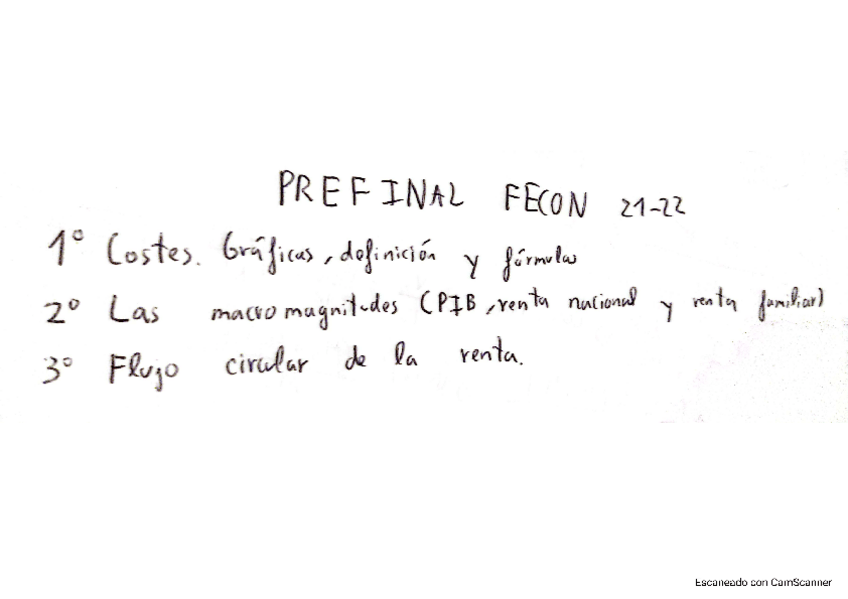 PREFINAL FECON 21-22
1º Costes. Gráficas, definición y fórmulas
2º Las macromagnitudes (PIB, renta nacional y renta familiar)
3º Flujo circular de la renta.
Escaneado con CamScanner